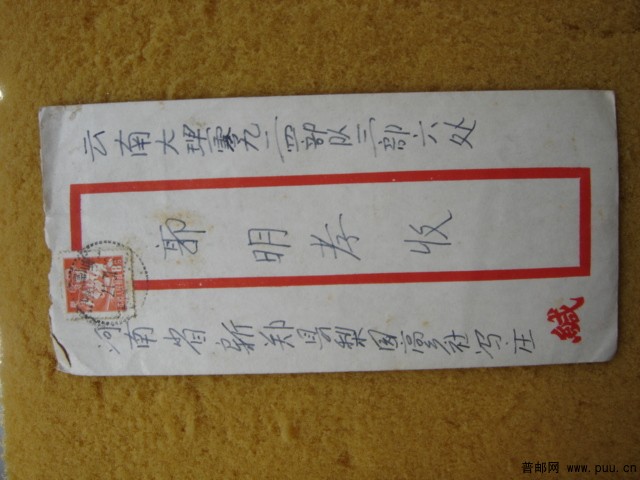 云南大理零九一四部队三部六处
郭明孝收
河南省新郑县梨园高社冯庄
缄
普邮网 www.puu.cn